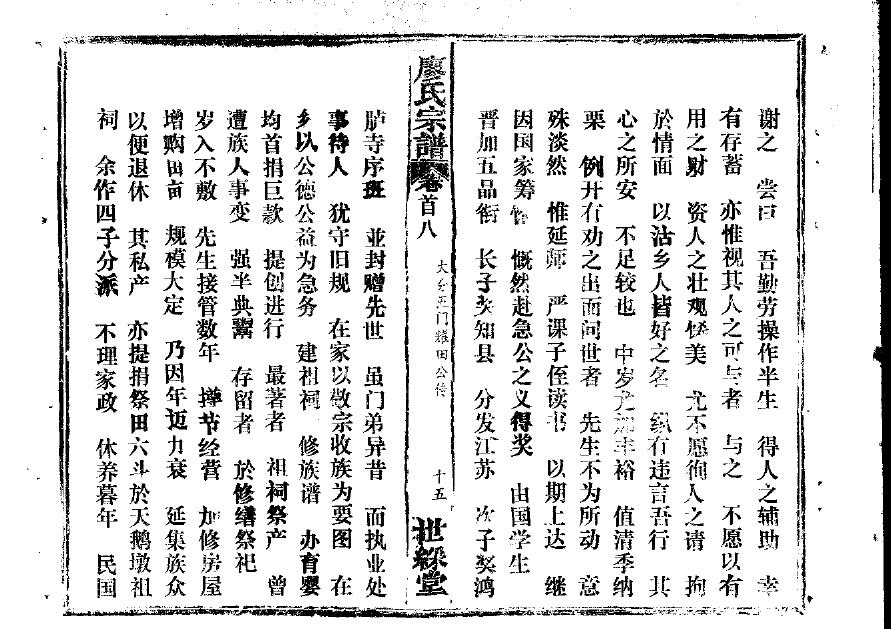 谢之 尝曰 吾勤劳操作半生 得人之辅助 幸
有存蓄 亦惟视其人之可与者 与之 不愿以有
用之财 资人之壮观 美 尤不愿徇人之请 拘
於情面 以沽乡人皆好之名 纵有违言吾行 其
心之所安 不足较也 中岁 丰裕 值清季纳
粟 例开有劝之出而问世者 先生不为所动 意
殊淡然 惟延师 严课子侄读书 以期上达 继
因国家筹 慨然赴急公之义得奖 由国学生
晋加五品衔 长子奖知县 分发江苏 次子奖鸿
廖氏宗譜 卷首八 大 五门 田公传 十五 世綵堂
胪寺序班 並封赠先世 虽门弟异昔 而执业处
事待人 犹守旧规 在家以敬宗收族为要图 在
乡以公德公益为急务 建祖祠 修族谱 办育婴
均首捐巨款 提创进行 最著者 祖祠祭产 曾
遭族人事变 强半典鬻 存留者 於修缮祭祀
岁入不敷 先生接管数年 撙节经营 加修房屋
增购田亩 规模大定 乃因年迈力衰 延集族众
以便退休 其私产 亦提捐祭田六斗於天鹅墩祖
祠 余作四子分派 不理家政 休养暮年 民国